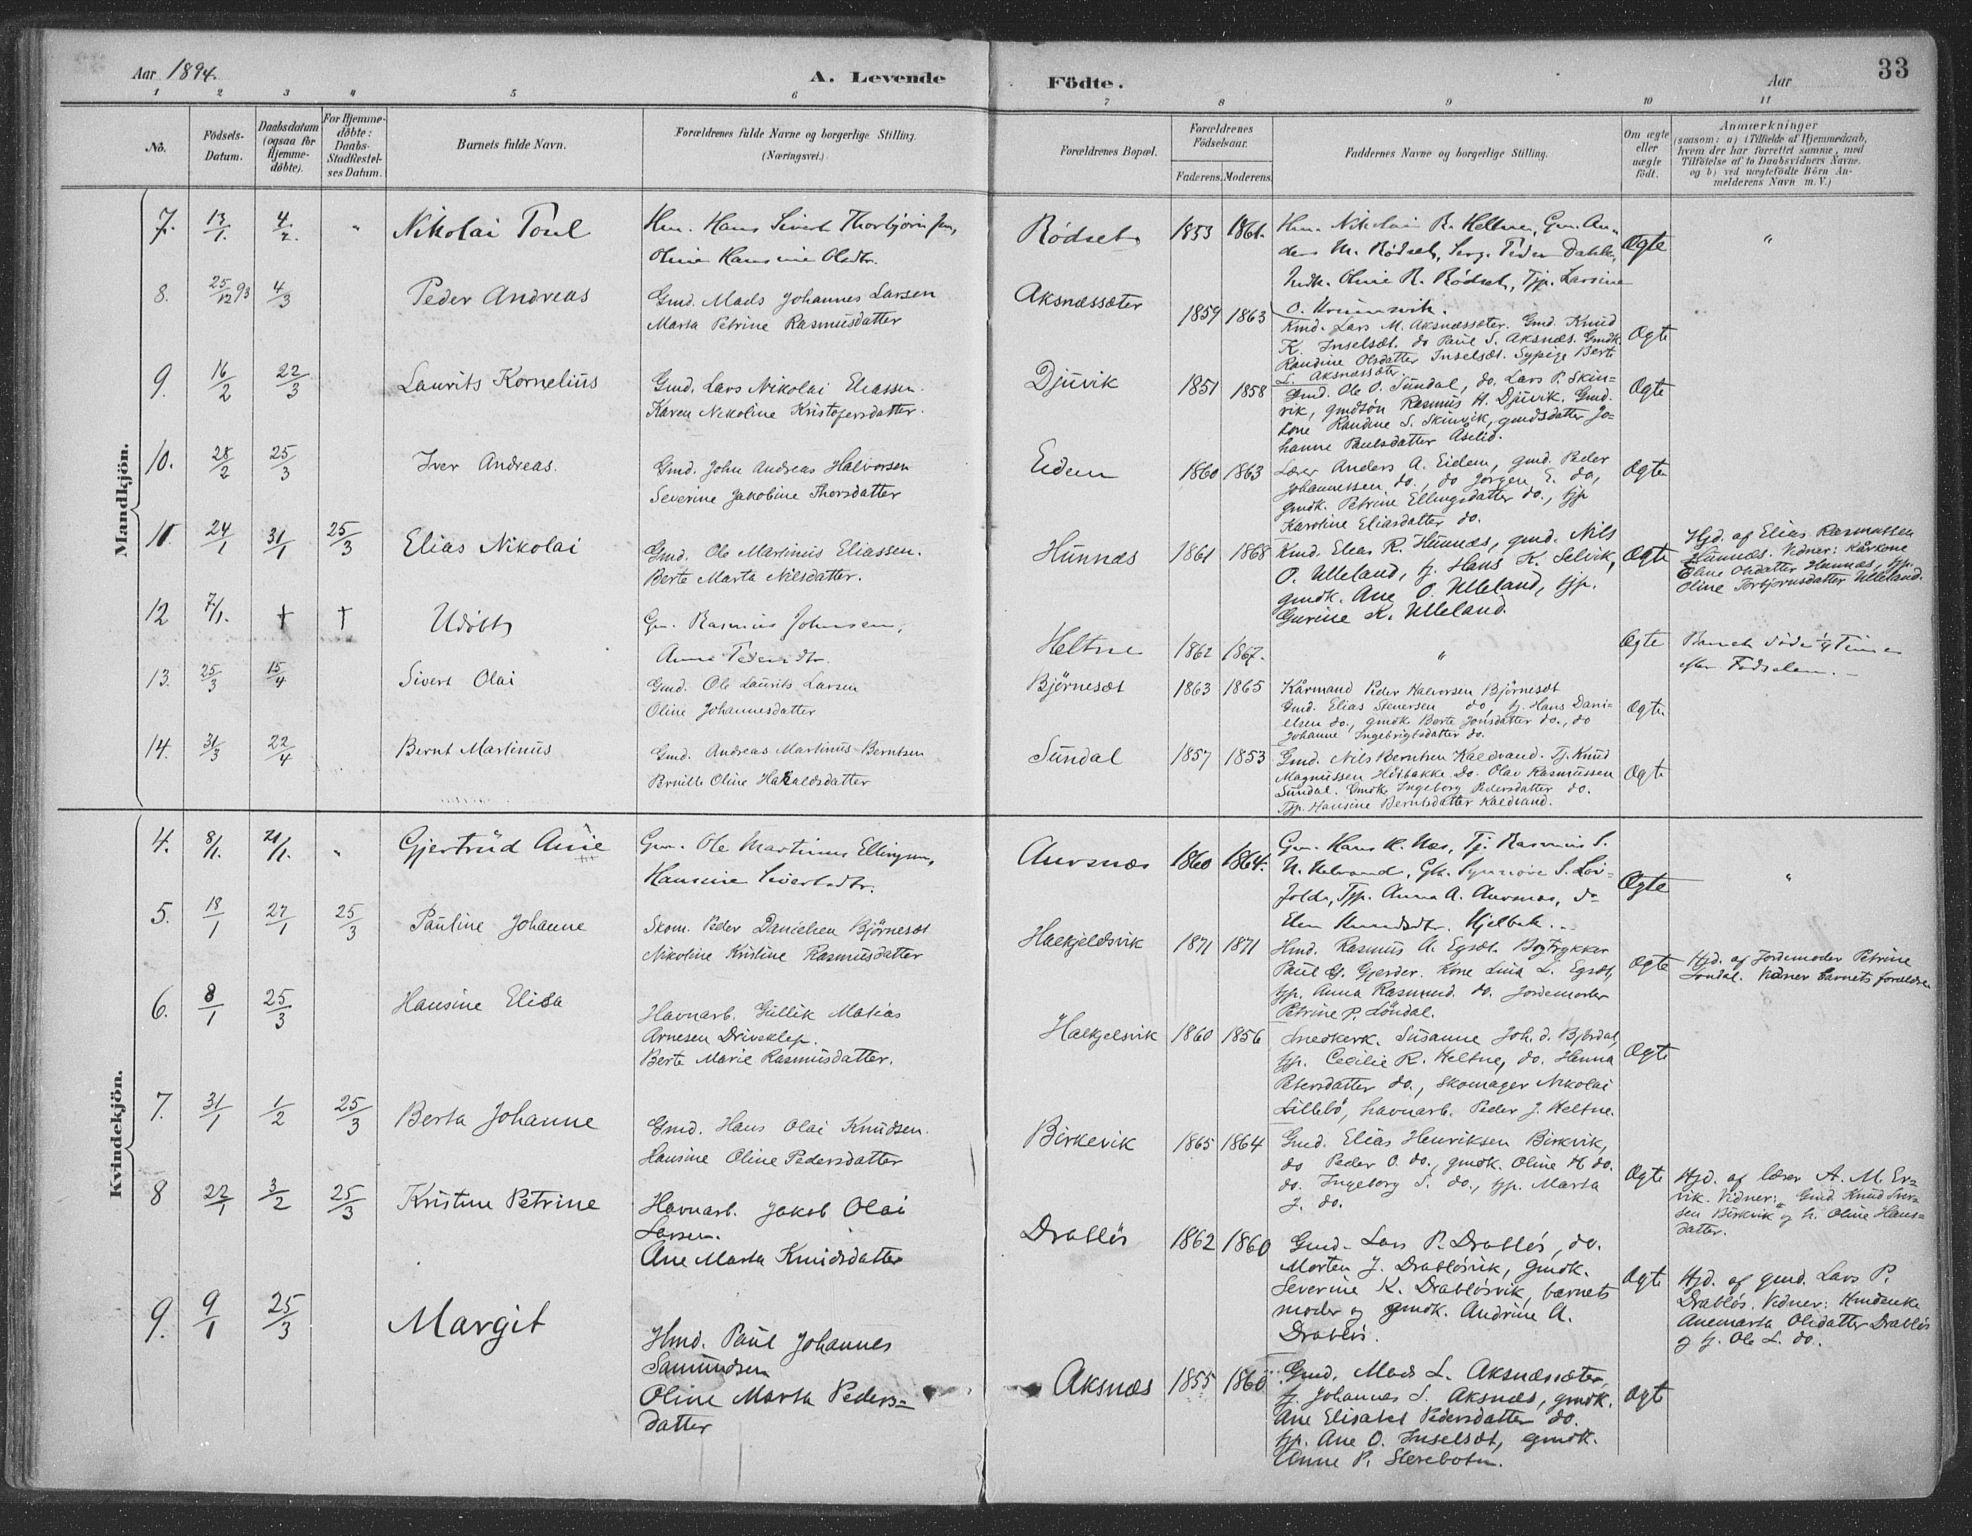 Aar 1894.
A. Levende
Födte.
Aar
33
1 2 3 4 5 6 7 8 9 10 11
No.
Födsels-
Datum.
Daabsdatum
(ogsaa for
Hjemme-
døbte).
For Hjemme-
døbte:
Daabs-
Stadfæstel-
ses Datum.
Barnets fulde Navn.
Forældrenes fulde Navne og borgerlige Stilling.
(Næringsvei.)
Forældrenes Bopæl.
Forældrenes
Födselsaar.
Faderens. Moderens.
Faddernes Navne og borgerlige Stilling.
Om ægte
eller
uægte
født.
Anmærkninger
(saasom: a) i Tilfælde af Hjemmedaab,
hvem der har forrettet samme, med
Tilföielse af to Daabsvidners Navne.
og b) ved uægtefödte Börn An-
melderens Navn m. V.)
Mandkjön.
7. 13/1. 4/2. " Nikolai Poul
Hans Sivert Thorbjørnsen,
Oline Hansine Olsdtr.
Rödset 1853 1861.
Nikolai R. Heltne, Gm. An-
ders M. Rödset, Peder Dahle,
Oline R. Rödset, Tjp. Larsine
O.
Ægte "
8. 25/12 93 4/3 Peder Andreas
Gmd. Mads Johannes Larsen
Marta Petrine Rasmusdatter
Aksnæssæter 1859 1863
Kmd. Lars M. Aksnæssæter. Gmd. Knud
K. Inselsæt. do Paul S. Aksnæs. Gmdk
Randine Olsdatter Inselsæt. Sypige Berte
L. Aksnæssæter.
Ægte
9. 16/2 22/3 Laurits Kornelius
Gmd. Lars Nikolai Eliassen.
Karen Nikoline Kristofersdatter.
Djuvik 1851 1858
Gmd. Ole O. Sundal, do. Lars P. Skin-
vik, gmdsön Rasmus H. Djuvik. Gmd.
kone Randine S. Skinvik, gmdsdatter Jo-
hanne Paulsdatter Aselid.
Ægte
10. 28/2 25/3 Iver Andreas.
Gmd. John Andreas Halvorsen
Severine Jakobine Thorsdatter
Eidem 1860 1863
Lærer Anders A. Eidem, gmd. Peder
Johannessen do., do Jørgen E. do,
gmdk. Petrine Ellingsdatter do., tjp
Karoline Eliasdatter do.
Ægte
11. 24/1 31/1 25/3 Elias Nikolai
Gmd. Ole Martinus Eliassen.
Berte Marta Nilsdatter.
Hunnæs 1861 1868
Kmd. Elias R. Hunnæs, gmd. Nils
O. Ulleland, tj. Hans K. Selvik,
gmdk. Ane O. Ulleland, tjp.
Gurine K. Ulleland.
Ægte
Hjd. af Elias Rasmussen
Hunnæs. Vidner: Kårkone
Eline Olsdatter Hunnæs, tjp.
Oline Torbjornsdatter Ulleland.
12 7/1. † † Udöbt
Gm. Rasmus Johnsen,
Anne Pedersdtr.
Heltne 1862 1867.
"
Ægte
Barnet döde 1/4 Time
efter Födselen.
13. 25/3 15/4 Sivert Olai
Gmd. Ole Laurits Larsen
Oline Johannesdatter
Björnesæt 1863 1865
Kårmand Peder Halvorsen Björnesæt
Gmd. Elias Stenersen do, tj. Hans Dani-
elsen do., gmdk Berte Jonsdatter do., do
Johanne Ingebrigtsdatter do.
Ægte.
14. 31/3 22/4 Bernt Martinus
Gmd. Andreas Martinus Berntsen
Oline Haraldsdatter
Sundal 1857 1853
Gmd. Nils Berntsen Kaldvand. Tj. Knud
Magnussen Höibakke do. Olav Rasmussen
Sundal. Gmdk. Ingeborg Pedersdatter do.
Tjp. Hansine Berntsdatter Kaldvand.
Ægte
Kvindekjön.
4. 8/1. 21/1. " Gjertrud Anne
Gm. Ole Martinus Ellingsen,
Hansine Sivertsdtr.
Aursnæs 1860 1864.
Gm. Hans K. Næs, Tj. Rasmus S.
Gk. Synnöve S.
Tjp. Anna A. Aursnæs, do
Knudsdtr. Hjelbak.
Ægte "
5. 18/1 27/1 25/3 Pauline Johanne
Skom. Peder Danielsen Björnesæt
Nikoline Kristine Rasmusdatter
Haekjeldsvik 1871 1871
Hmd. Rasmus A. Egsæt. Bogtrykker
Paul G. Gjerder. Kone Lina L. Egsæt,
tjp. Anna Rasmusd. do. Jordemoder
Petrine P. Löndal.
Ægte
Hjd. af Jordemoder Petrine
Löndal. Vidner barnets forældre
6. 8/1 25/3 Hansine Elisa
Havnarb. Gullik Matias
Arnesen Driveklep.
Berte Marie Rasmusdatter.
Haekjelsvik 1860 1856
Snedkerk. Susanne Joh. d. Björdal,
tjp. Cecilie R. Heltne, do. Hanna
Petersdatter do., Skomager Nikolai
Lillebö, havnarb. Peder J. Heltne.
Ægte
7. 31/1 1/2 25/3 Berta Johanne
Gmd. Hans Olai Knudsen.
Hansine Oline Pedersdatter
Birkevik 1865 1864
Gmd. Elias Henriksen Birkvik,
do Peder O. do., gmdk. Oline H do.
do. Ingeborg S. do., tjp. Marta
J. do.
Ægte
Hjd. af lærer A. M. Er-
vik. Vidner: Gmd Knud Iver-
sen Birkvik og h. Oline Hans-
datter.
8 22/1 3/2 25/3 Kristine Petrine
Havnarb. Jakob Olai
Larsen.
Ane Marta Knudsdatter
Drablös 1862 1860
Gmd. Lars P. Drablös, do.
Morten J. Drablösvik, gmdk.
Severine K. Drablösvik, barnets
moder og gmdk. Andrine A.
Drablös.
Ægte
Hjd. af gmd. Lars P.
Drablös. Vidner: Hmdenke
Anemarta Olsdatter Drablös
og tj. Ole L. do.
9. 9/1 25/3 Margit
Hmd. Paul Johannes
Samundsen
Oline Marta Peders-
datter
Aksnæs 1855 1860
Gmd. Mads L. Aksnæssæter,
tj. Johannes S. Aksnæs, gmdk.
Ane Elisabet Pedersdatter do.
tjp. Ane O. Inselsæt, gmdk.
Anne P. Slerebotn.
Ægte